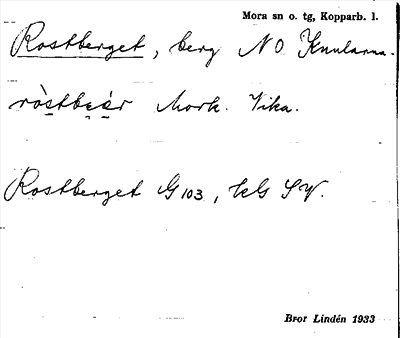 Mora sn o. tg, Kopparb. l.
Rostberget, berg NO Knularna.
ròstbɛ̀ár Mork. Vika.
Rostberget G 103, bl S V.
Bror Lindén 1933